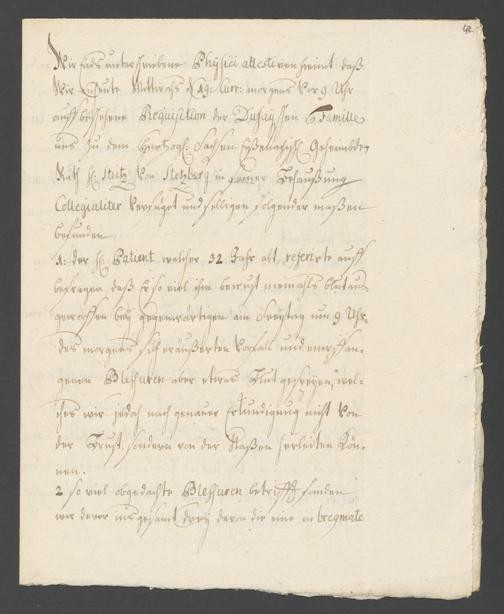 42
Wir Ends unterschriebene Physici attestiren hiemit daß
Wir heute Mittwochs d. 19: Curr: morgens vor 9 Uhr
auff beschehene Requisition der Famille
uns zu dem Hertzogl. Sachsen Eysenachisch. Geheimbden
Rath H. Stutz von Stetzberg in seiner Behaußung
Collegialiter verfüget und selbigen folgender maßen
befunden
1: der H. Patient, welcher 32 Jahr alt, referirte auff
befragen daß Er so viel ihm bewust niemahls blut aus
geworffen bey gegenwärtigen am Freytag um 9 Uhr
des morgens sich eräußerten Vorfall und empfan-
genen Blessuren aber etwas Blut gespyen, wel-
ches wir jedoch nach genauer Erkundigung nicht von
der Brust, sondern von der Naßen herleiten Kön-
nen.
2 so viel obgedachte Blessuren betrifft fanden
wir derer ins gesamt drey davon die eine in bregmate